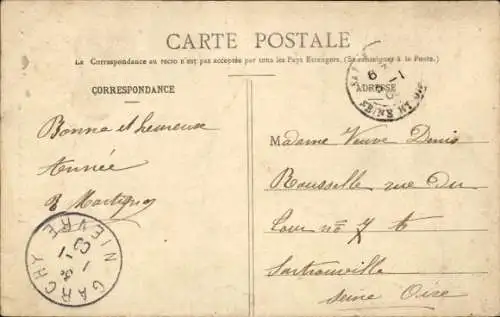 CARTE POSTALE
La Correspondance au recto n'est pas acceptée par tous les Pays Etrangers. (Se renseigner à la Poste.)
CORRESPONDANCE
ADRESSE
Bonne et heureuse
Année
Martignon
Madame Veuve Denis
Rousselle rue du
Cour no 7 à
Sartrouville
Seine Oise
GARCHY
NIEVRE